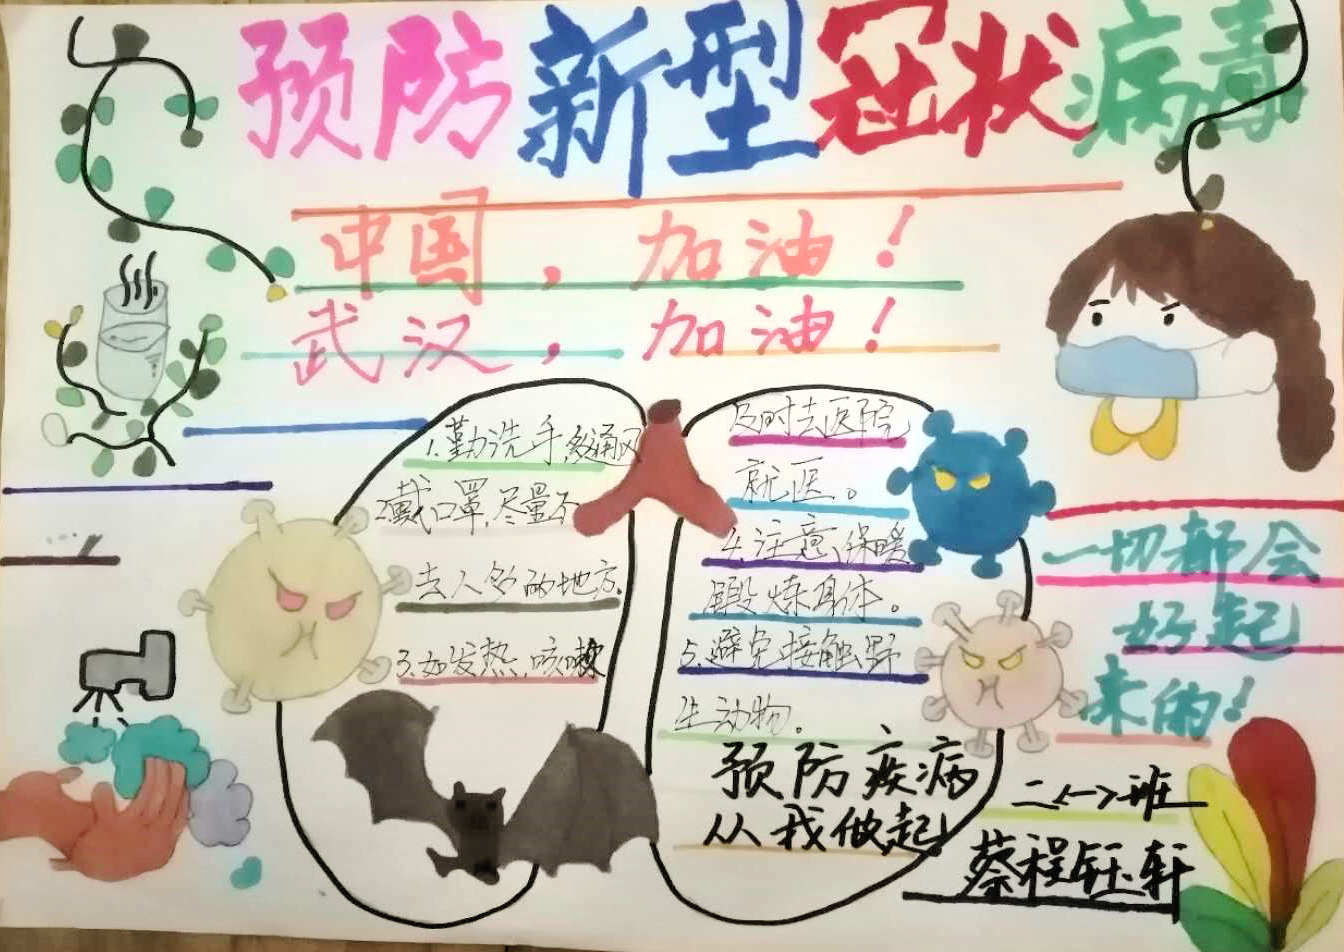 预防新型冠状病毒
中国，加油！
武汉，加油！
1.勤洗手,多通风
2.戴口罩,尽量不
去人多的地方.
3.如发热,咳嗽
及时去医院
就医。
4.注意保暖
锻炼身体。
5.避免接触野
生动物。
预防疾病
从我做起!
一切都会
好起
来的!
二<一>班
蔡程钰轩